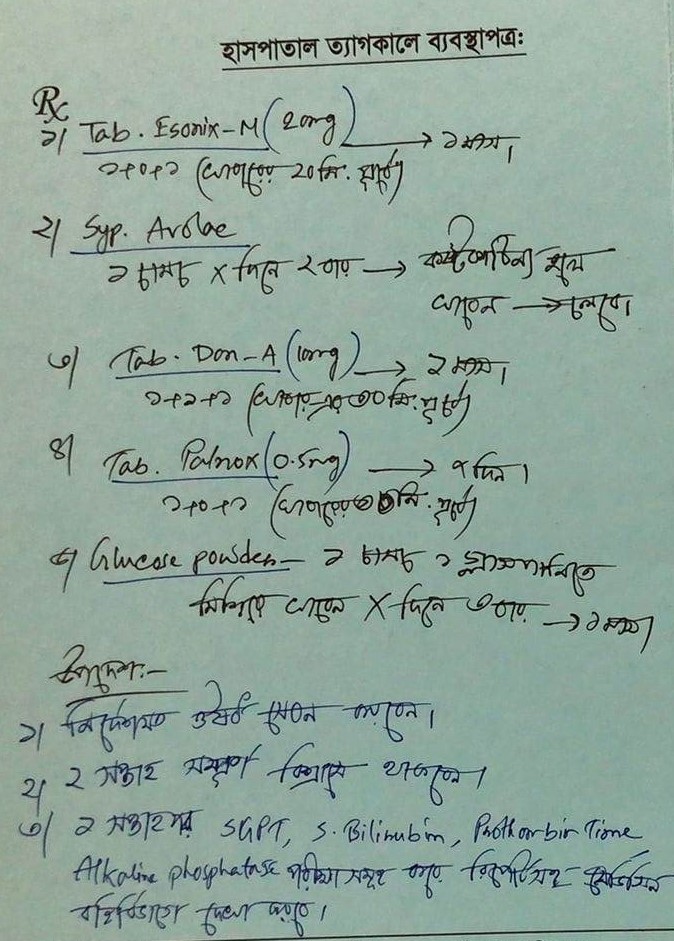 হাসপাতাল ত্যাগকালে ব্যবস্থাপত্র:
Rx
১| Tab. Esonix-M (20mg) → ১ মাস।
১+০+১ (খাবারের 20 মি. পূর্বে)
২| Syp. Avolac
২ চামচ X দিনে ২ বার → কোষ্ঠকাঠিন্য হলে
খাবেন → চলবে।
৩| Tab. Don-A (10mg) → ১ মাস।
১+১+১ (খাবার এর ৩০ মি. পূর্বে)
৪| Tab. Palnox (0.5mg) → ৭ দিন।
১+০+১ (খাবারের ৩০ মি. পূর্বে)
৫| Glucose powder - ২ চামচ ১ গ্লাস পানিতে
মিশিয়ে খাবেন X দিনে ৩ বার → ১ মাস।
উপদেশ:-
১| নির্দেশমত ঔষধ সেবন করবেন।
২| ২ সপ্তাহ সম্পূর্ণ বিশ্রামে থাকবেন।
৩| ২ সপ্তাহ পর SGPT, S. Bilirubin, Prothrombin Time
Alkaline phosphatase পরীক্ষা সমূহ করে রিপোর্টসহ মেডিসিন
বহির্বিভাগে দেখা করবে।